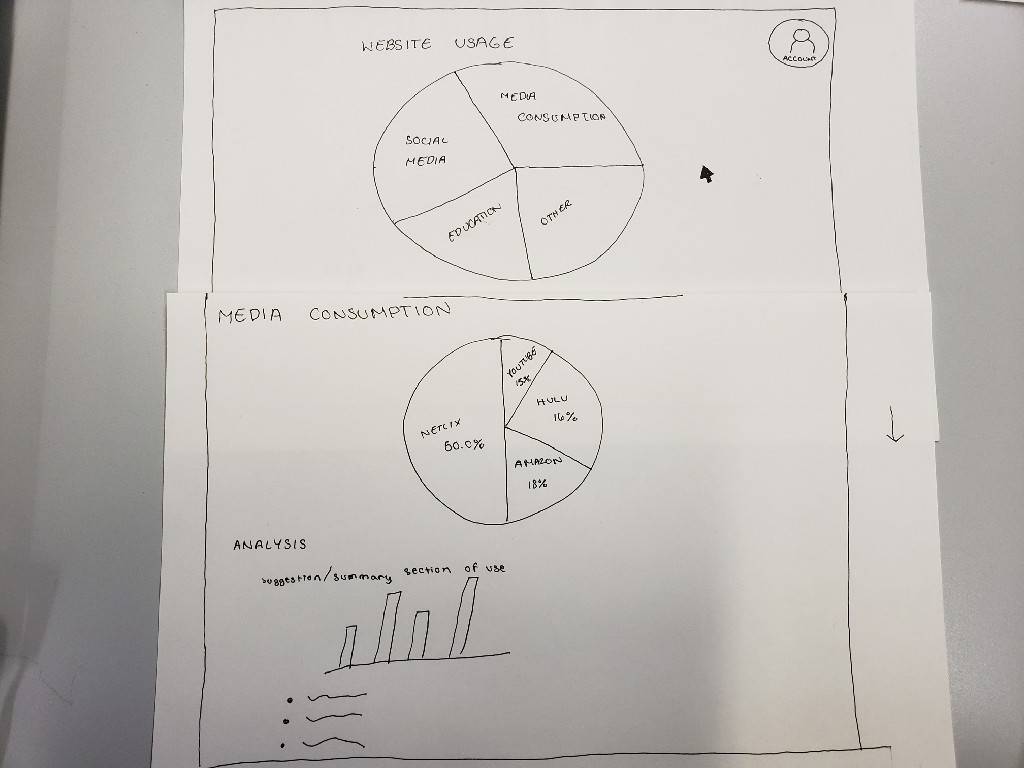 WEBSITE USAGE
ACCOUNT
MEDIA
CONSUMPTION
SOCIAL
MEDIA
EDUCATION
OTHER
MEDIA CONSUMPTION
YOUTUBE
15%
HULU
16%
NETLIX
50.0%
AMAZON
18%
ANALYSIS
suggestion/summary section of use